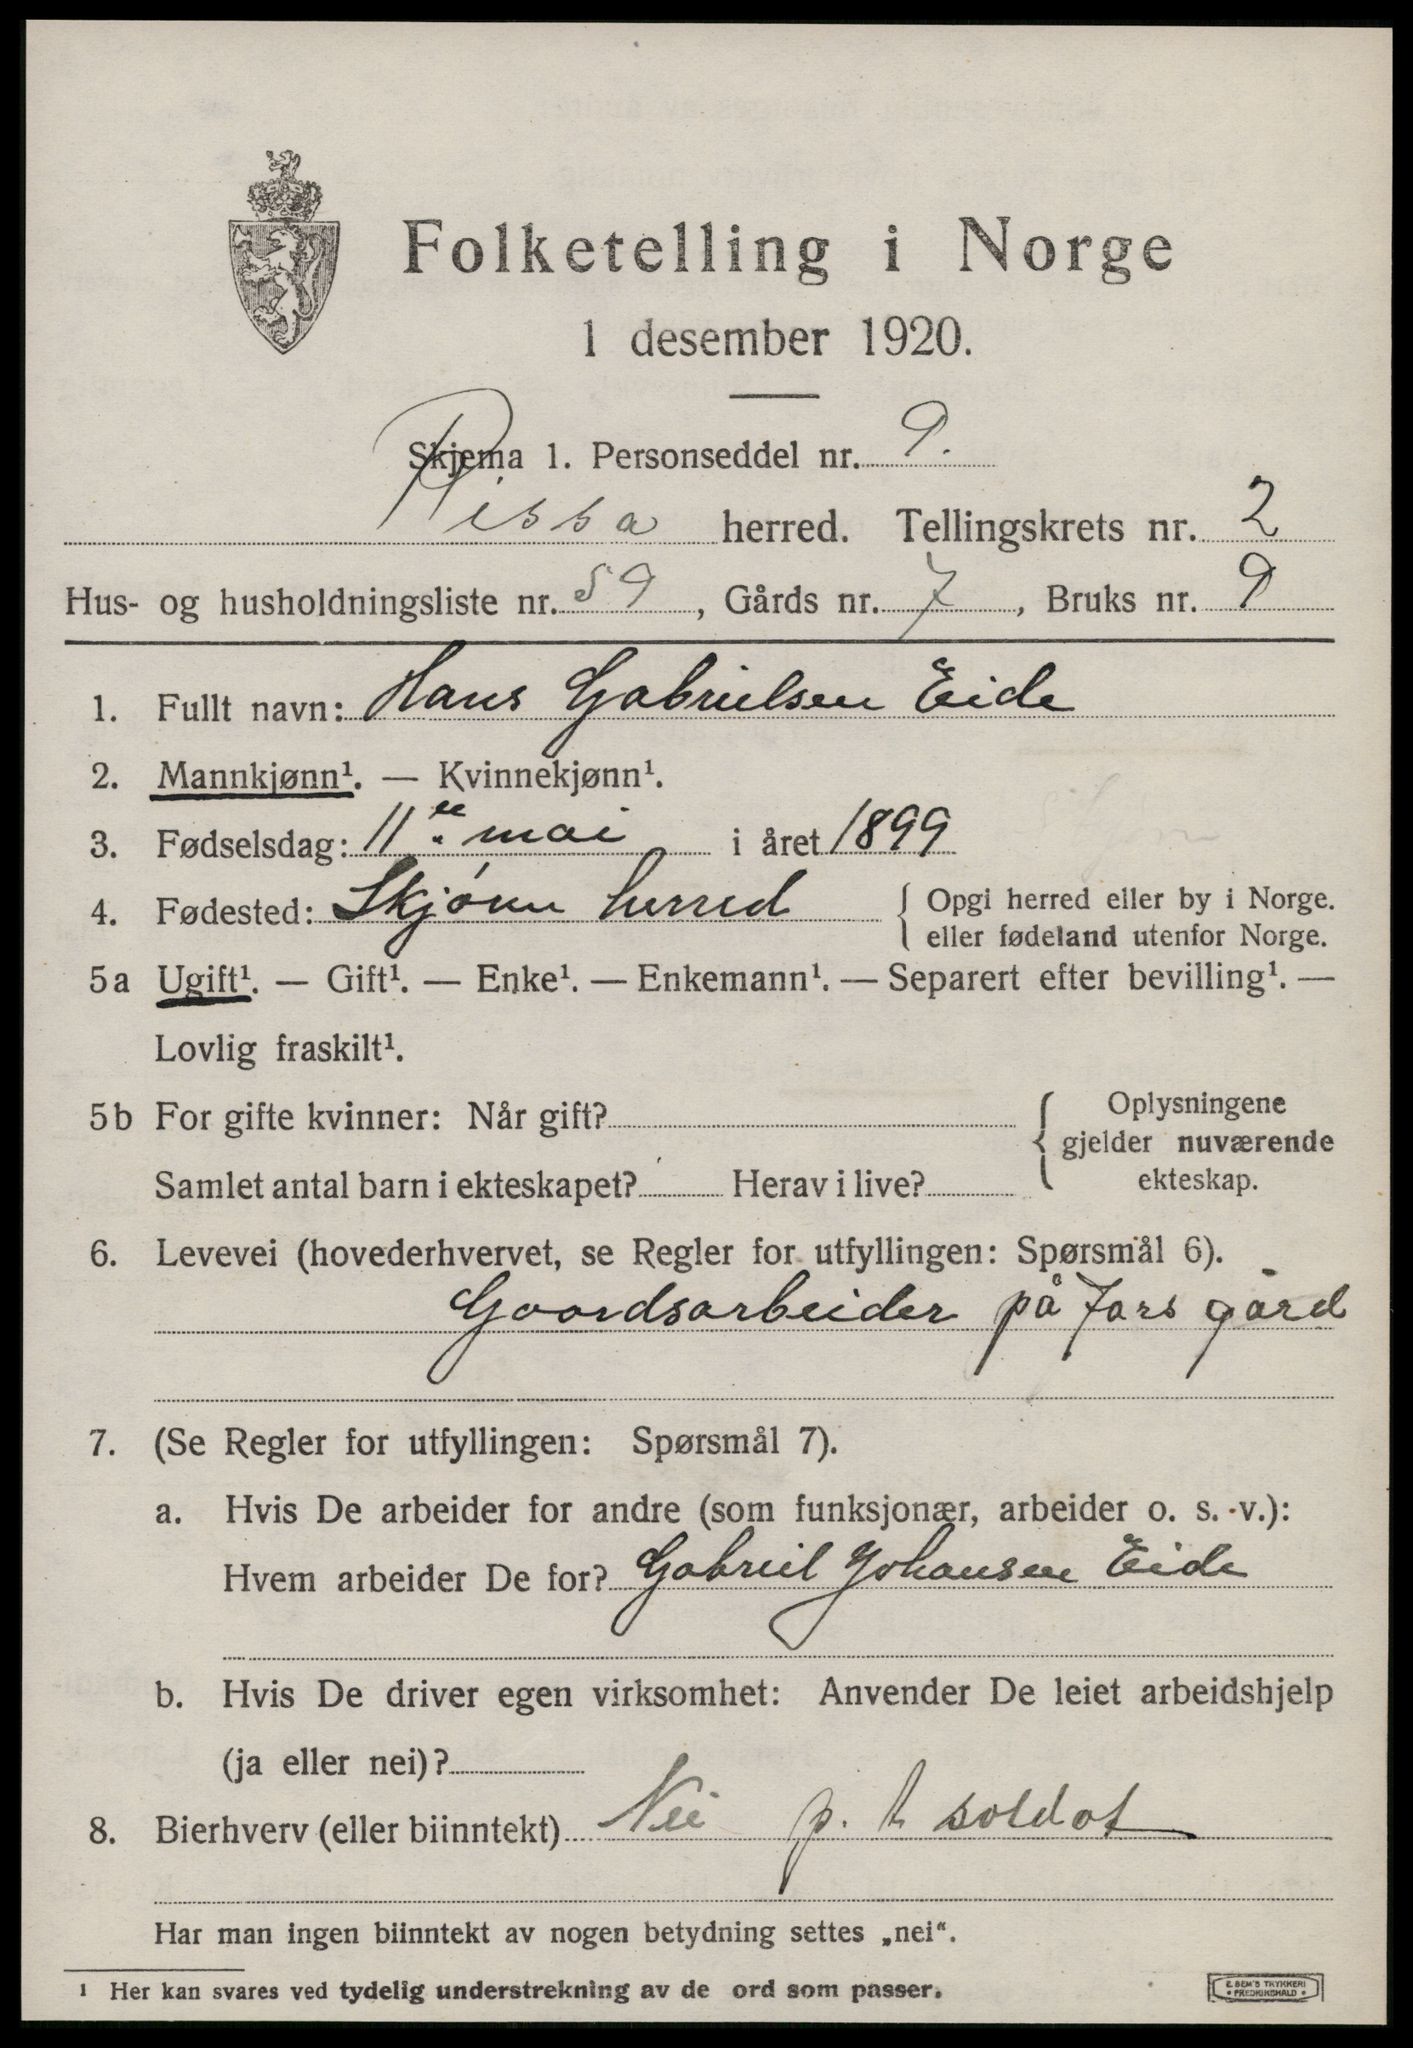 Folketelling i Norge
1 desember 1920.
Skjema 1. Personseddel nr. 9.
Rissa herred. Tellingskrets nr. 2
Hus- og husholdningsliste nr. 59, Gårds nr. 7, Bruks nr. 9
1. Fullt navn: Hans Gabrielsen Eide
2. Mannkjønn¹. — Kvinnekjønn¹.
3. Fødselsdag: 11te mai i året 1899
4. Fødested: Skjørn herred { Opgi herred eller by i Norge.
eller fødeland utenfor Norge.
5a Ugift¹. — Gift¹. — Enke¹. — Enkemann¹. — Separert efter bevilling¹. —
Lovlig fraskilt¹.
5b For gifte kvinner: Når gift? { Oplysningene
gjelder nuværende
Samlet antal barn i ekteskapet? Herav i live? ekteskap.
6. Levevei (hovederhvervet, se Regler for utfyllingen: Spørsmål 6).
Gaardsarbeider på fars gård
7. (Se Regler for utfyllingen: Spørsmål 7).
a. Hvis De arbeider for andre (som funksjonær, arbeider o. s. v.):
Hvem arbeider De for? Gabriel Johansen Eide
b. Hvis De driver egen virksomhet: Anvender De leiet arbeidshjelp
(ja eller nei)?
8. Bierhverv (eller biinntekt) Nei p. t soldat
Har man ingen biinntekt av nogen betydning settes „nei“.
¹ Her kan svares ved tydelig understrekning av de ord som passer.
E. SEM'S TRYKKERI
FREDRIKSHALD